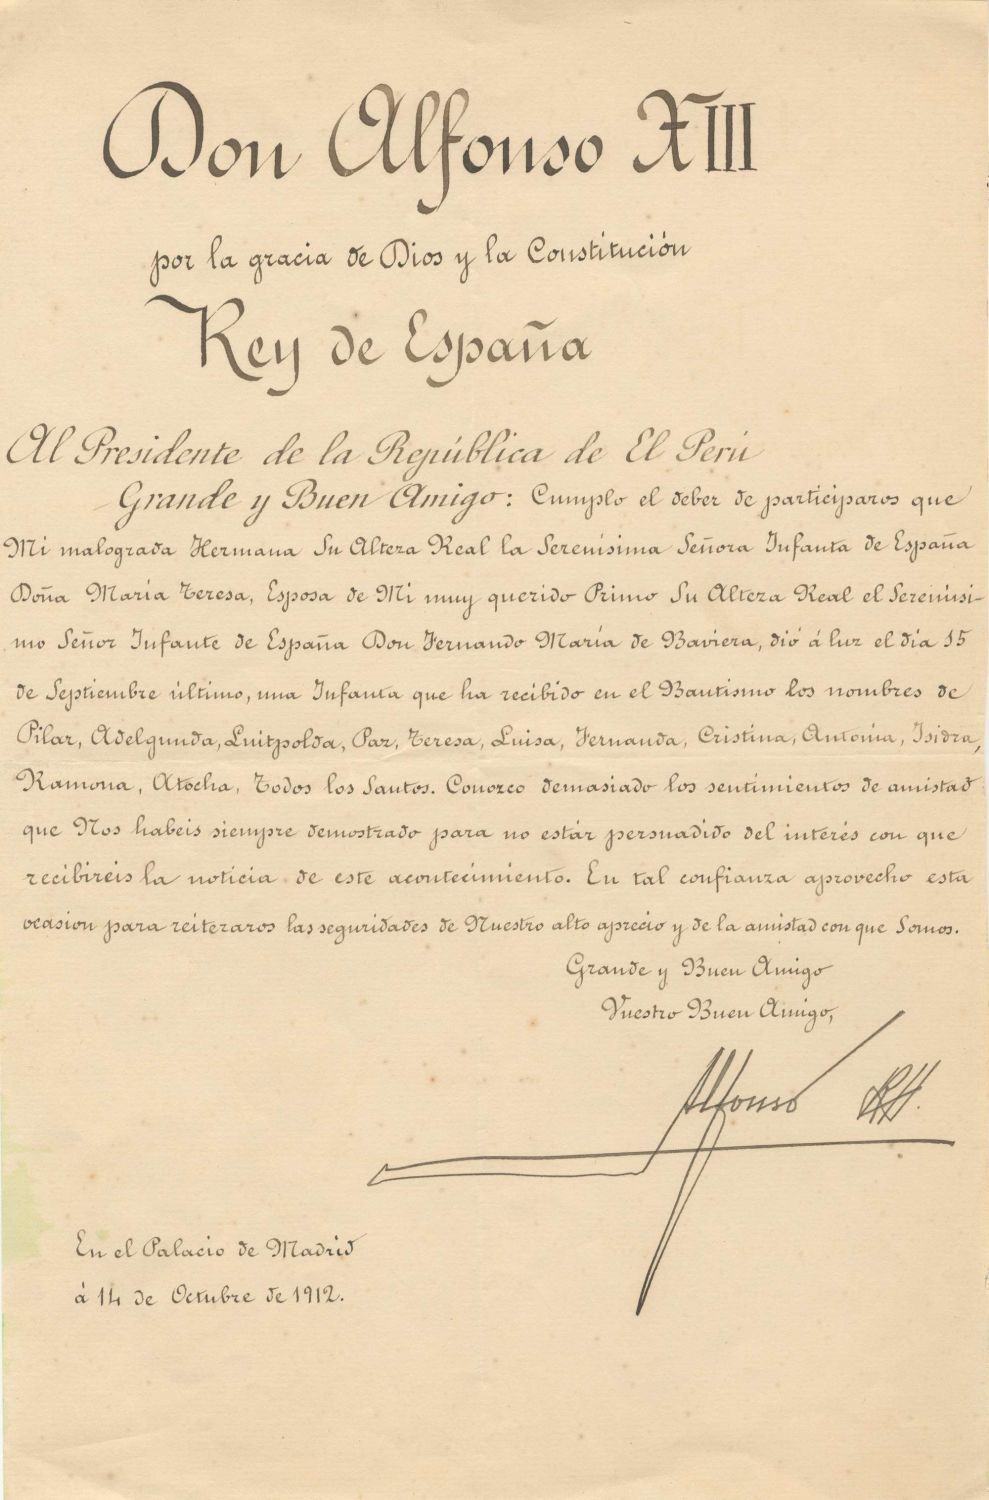 Don Alfonso XIII
por la gracia de Dios y la Constitución
Rey de España
Al Presidente de la República de El Perú
Grande y Buen Amigo: Cumplo el deber de participaros que
Mi malograda Hermana Su Alteza Real la Serenísima Señora Infanta de España
Doña María Teresa, Esposa de Mi muy querido Primo Su Alteza Real el Serenísi-
mo Señor Infante de España Don Fernando María de Baviera, dió á luz el día 15
de Septiembre último, una Infanta que ha recibido en el Bautismo los nombres de
Pilar, Adelgunda, Luitpolda, Paz, Teresa, Luisa, Fernanda, Cristina, Antonia, Isidra,
Ramona, Atocha, Todos los Santos. Conozco demasiado los sentimientos de amistad
que Nos habeis siempre demostrado para no estár persuadido del interés con que
recibireis la noticia de este acontecimiento. En tal confianza aprovecho esta
ocasion para reiteraros las seguridades de Nuestro alto aprecio y de la amistad con que Somos.
Grande y Buen Amigo
Vuestro Buen Amigo,
Alfonso RH.
En el Palacio de Madrid
á 14 de Octubre de 1912.